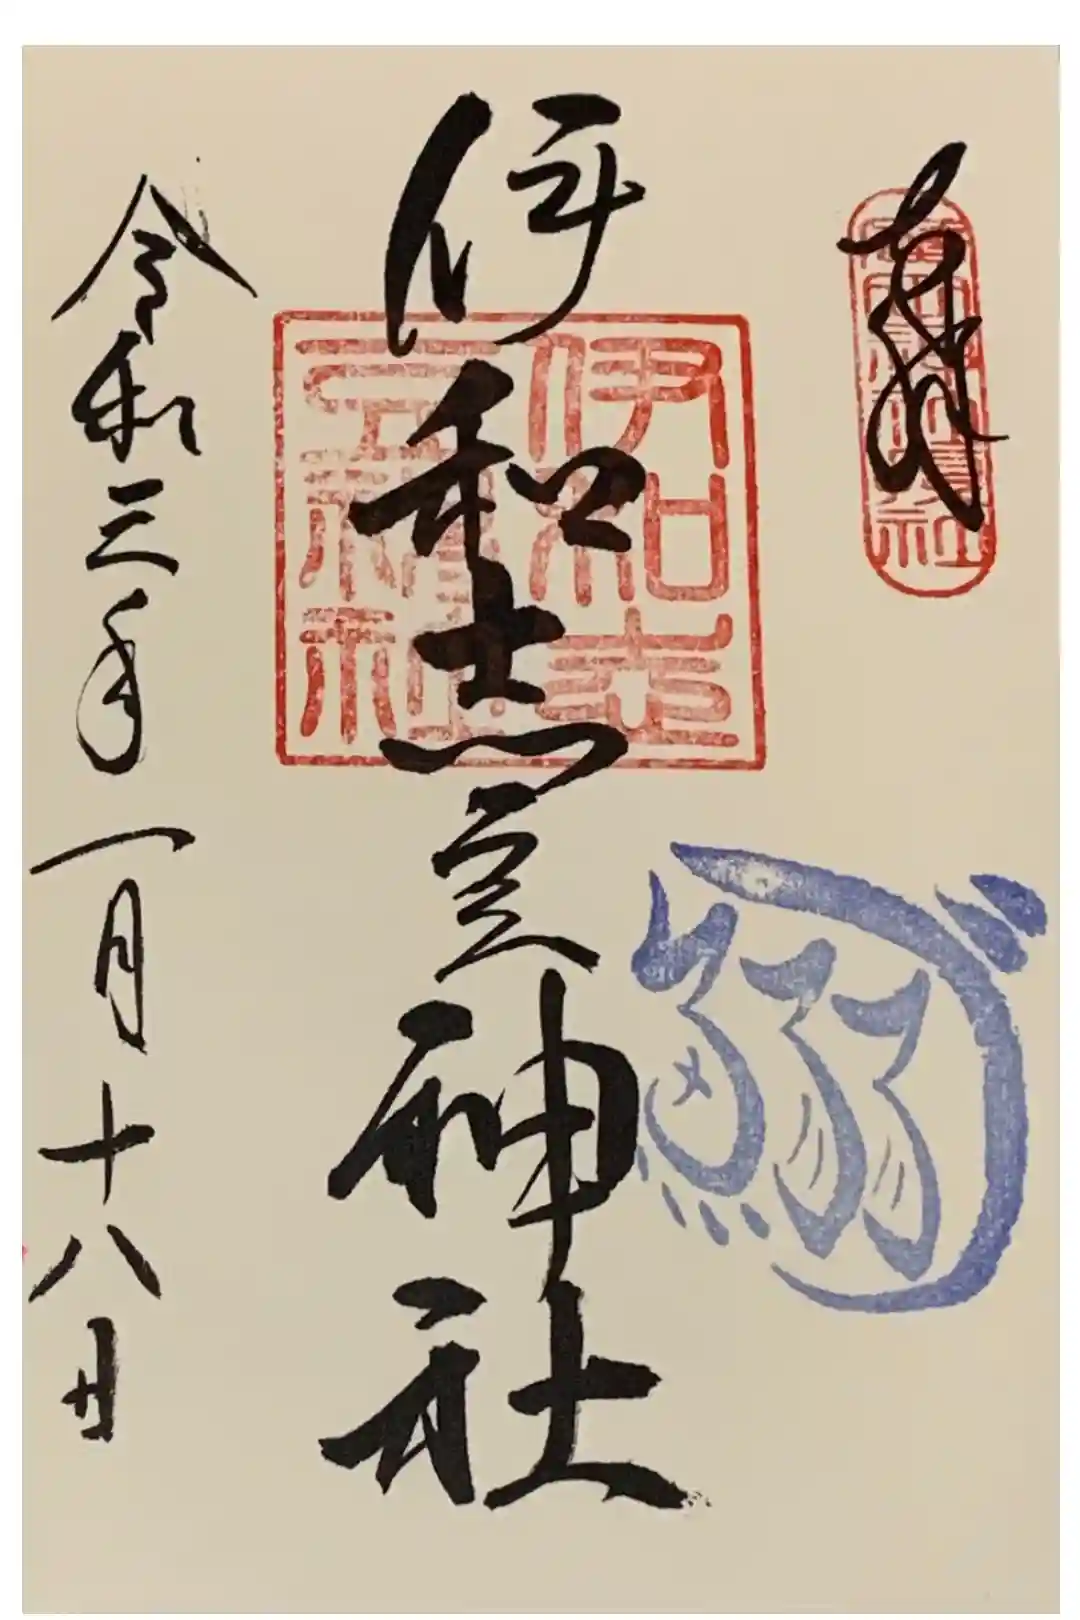 奉拝
伊和志豆神社
伊和志豆神社
鰯づ
令和三年一月十八日